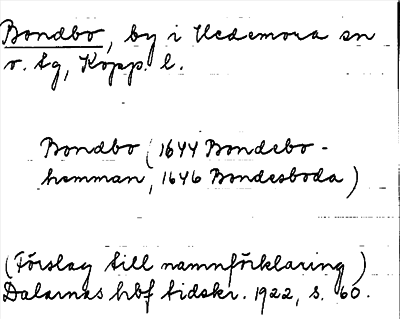 Bondbo, by i Hedemora sn
o. tg, Kopp. l.
Bondbo (1644 Bondebo-
hemman, 1646 Bondesboda)
(Förslag till namnförklaring)
Dalarnas hbf tidskr. 1922, s. 60.